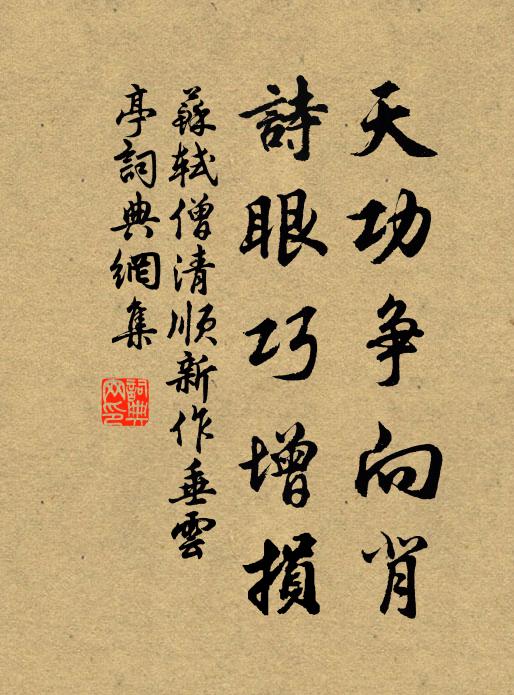 天功争向背
詩眼巧增損
蘇軾僧清順新作垂雲
亭詞典網集
詞典網印